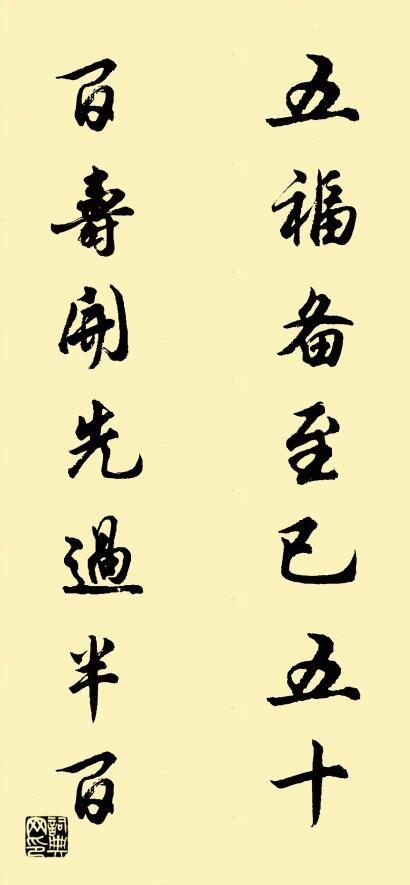 五福备至已五十
百壽開先過半百
詞典网印